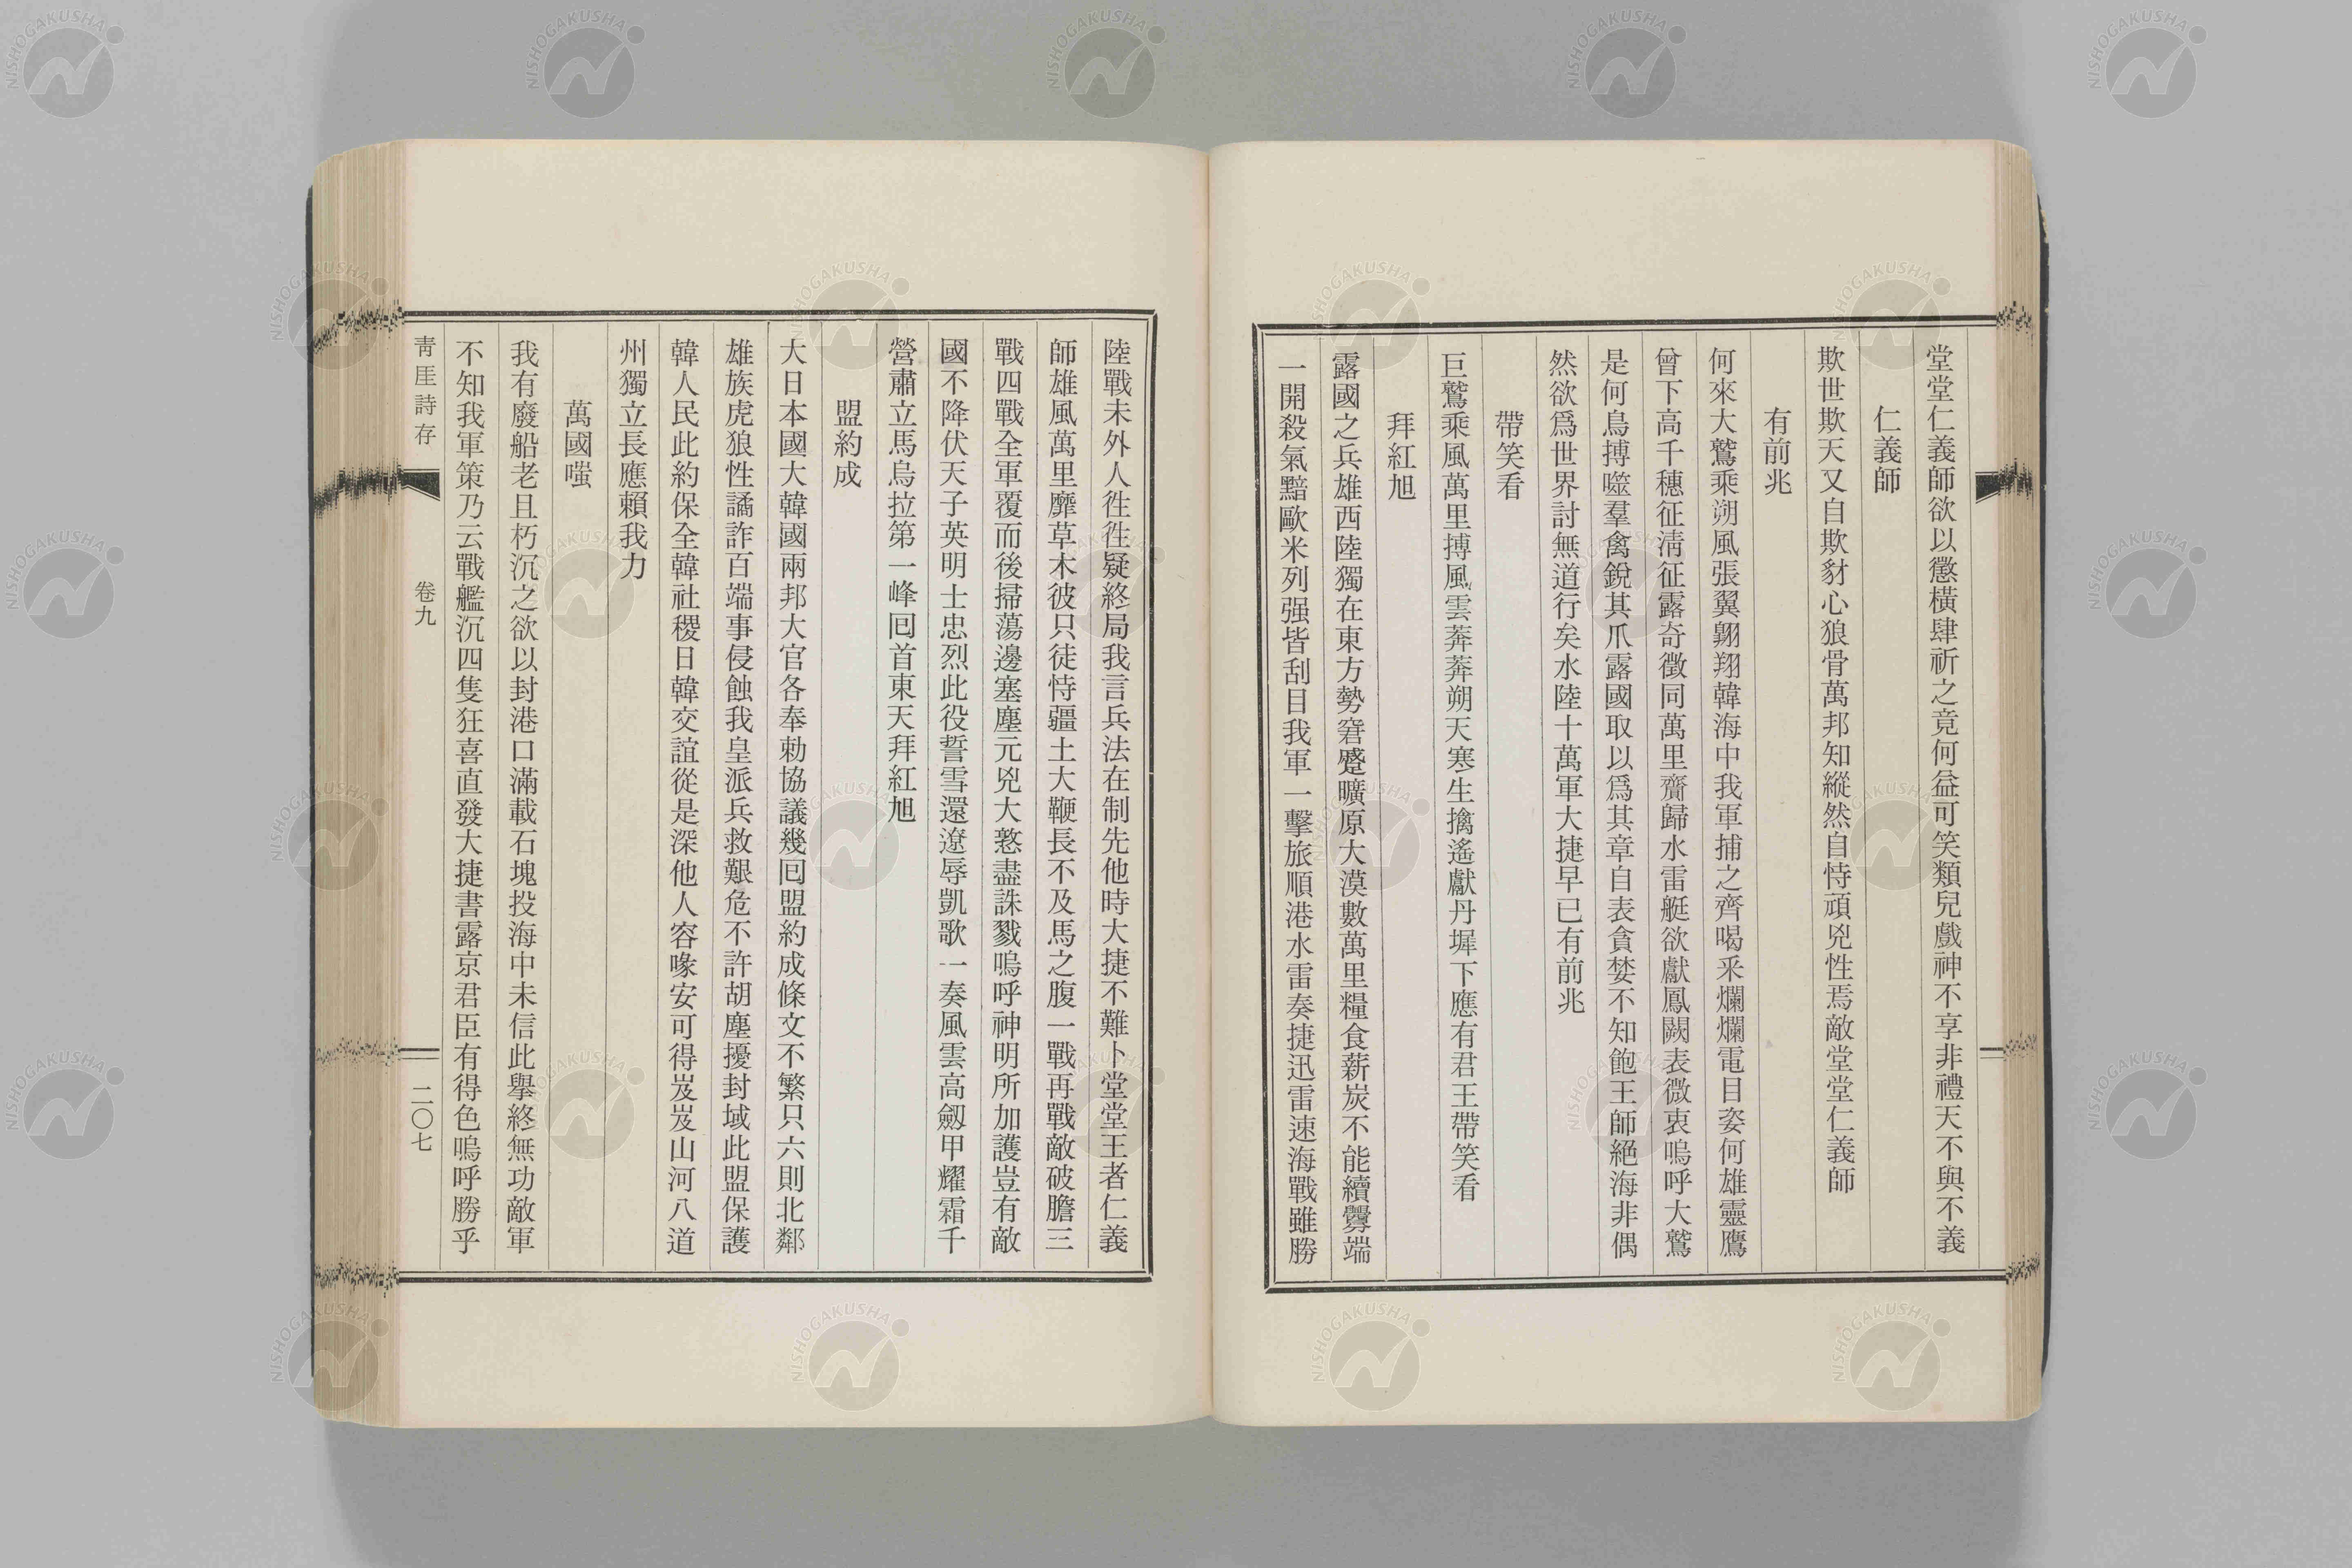 堂堂仁義師欲以懲橫肆祈之竟何益可笑類兒戲神不享非禮天不與不義
仁義師
欺世欺天又自欺豺心狼骨萬邦知縱然自恃頑兇性焉敵堂堂仁義師
有前兆
何來大鷲乘朔風張翼翺翔韓海中我軍捕之齊喝釆爛爛電目姿何雄靈鷹
曾下高千穗征淸征露奇徵同萬里齎歸水雷艇欲獻鳳闕表微衷嗚呼大鷲
是何鳥搏噬羣禽銳其爪露國取以爲其章自表貪婪不知飽王師絕海非偶
然欲爲世界討無道行矣水陸十萬軍大捷早已有前兆
帶笑看
巨鷲乘風萬里搏風雲莽莽朔天寒生擒遙獻丹墀下應有君王帶笑看
拜紅旭
露國之兵雄西陸獨在東方勢窘蹙曠原大漠數萬里糧食薪炭不能續釁端
一開殺氣黯歐米列强皆刮目我軍一擊旅順港水雷奏捷迅雷速海戰雖勝
陸戰未外人徃徃疑終局我言兵法在制先他時大捷不難卜堂堂王者仁義
師雄風萬里靡草木彼只徒恃疆土大鞭長不及馬之腹一戰再戰敵破膽三
戰四戰全軍覆而後掃蕩邊塞塵元兇大憝盡誅戮嗚呼神明所加護豈有敵
國不降伏天子英明士忠烈此役誓雪還遼辱凱歌一奏風雲高劔甲耀霜千
營肅立馬烏拉第一峰囘首東天拜紅旭
盟約成
大日本國大韓國兩邦大官各奉勅協議幾囘盟約成條文不繁只六則北鄰
雄族虎狼性譎詐百端事侵蝕我皇派兵救艱危不許胡塵擾封域此盟保護
韓人民此約保全韓社稷日韓交誼從是深他人容喙安可得岌岌山河八道
州獨立長應賴我力
萬國嗤
我有廢船老且朽沉之欲以封港口滿載石塊投海中未信此擧終無功敵軍
不知我軍策乃云戰艦沉四隻狂喜直發大捷書露京君臣有得色嗚呼勝乎
靑厓詩存
卷九
二〇七
NISHOGAKUSHA